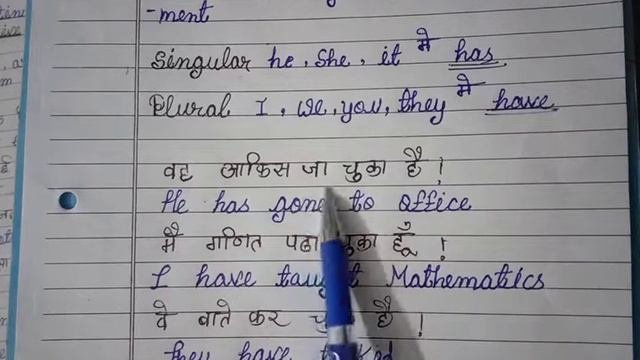 -ment
Singular he, she, it मे has
Plural I, we, you, they मे have
वह आफिस जा चुका है !
He has gone to office
मै गणित पढा चुका हूँ !
I have taught Mathematics
वे बाते कर है !
they have